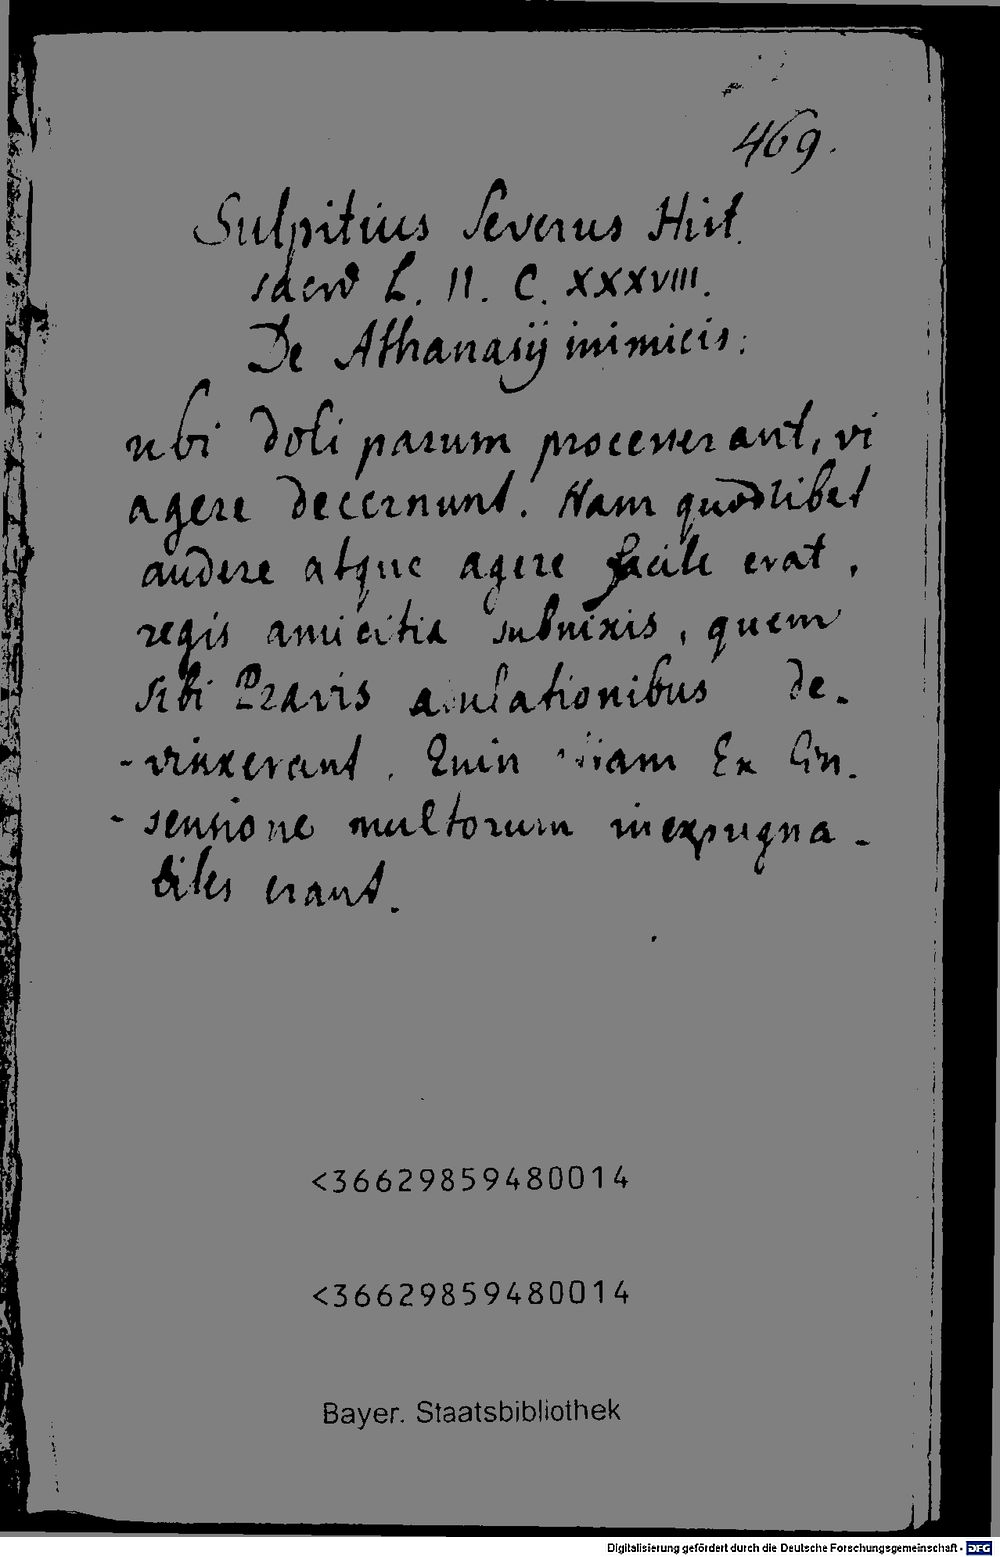 469.
Sulpitius Severus Hist.
sacrae L. II. C. XXXVIII.
De Athanasij inimicis:
ubi doli parum processerant, vi
agere decernunt. Nam quodlibet
audere atque agere facile erat,
regis amicitia subnixis, quem
sibi Pravis adulationibus de-
-vinxerant. Quin etiam Ex Con-
-sensione multorum inexpugna-
biles erant.
<36629859480014
<36629859480014
Bayer. Staatsbibliothek
Digitalisierung gefördert durch die Deutsche Forschungsgemeinschaft - DFG